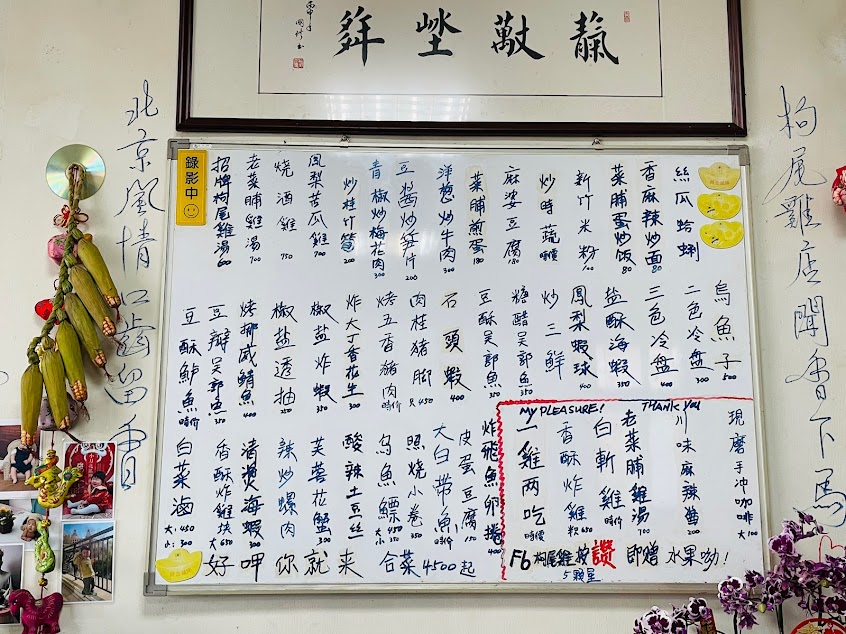 枸尾雞店聞香下馬
北京風情口齒留香
錄影中
絲瓜蛤蜊
香麻辣炒麵 80
菜脯蛋炒飯 80
新竹米粉 100
炒時蔬 時價
麻婆豆腐 180
菜脯煎蛋 180
洋蔥炒牛肉 300
豆醬炒筍片 200
青椒炒梅花肉 300
炒桂竹筍 200
鳳梨苦瓜雞 700
燒酒雞 750
老菜脯雞湯 700
招牌枸尾雞湯 600
烏魚子 500
二色冷盘 300
三色冷盘 400
盐酥海蝦 350
鳳梨蝦球 400
炒三鮮
糖醋吴郭魚 350
豆酥吴郭魚 350
石頭蝦 400
肉桂猪脚 只450
烤五香豬肉 時价
炸大丁香花生 300
椒盐炸蝦 350
椒盐透抽 250
烤挪威鯖魚
豆瓣吴郭魚 350
豆酥鱸魚 時价
炸飛魚卵捲 400
皮蛋豆腐 150
大白帶魚 時价
照燒小卷 350
烏魚鰾 大450 小350
酸辣土豆丝
芙蓉花蟹 300
辣炒螺肉
清燙海蝦 300
香酥炸雞块 大350
白菜滷 大:450 小:300
好呷你就来 合菜4500起
MY PLEASURE! THANK YOU
現磨手冲咖啡 大100
川味麻辣醬 200
老菜脯雞湯 700
白斬雞 時价
香酥炸雞 650
一雞两吃 時價
Fb 枸尾雞按讚 即赠水果呦!
5顆星